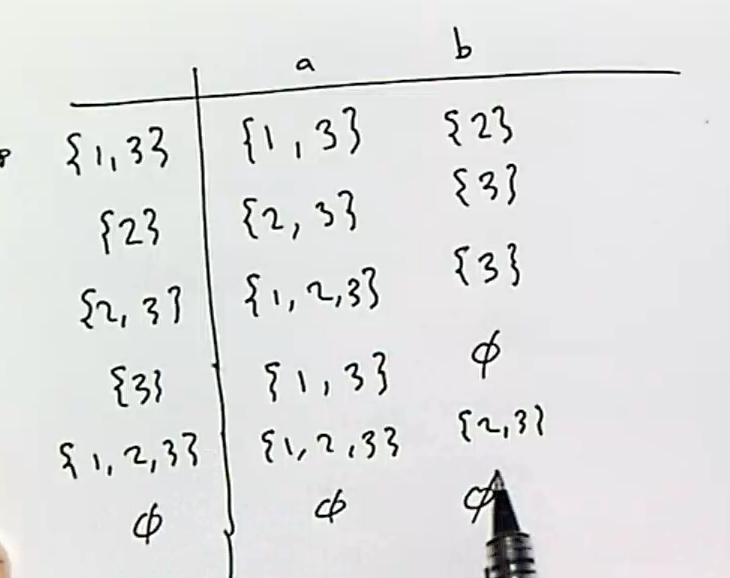 a b
{1,3} {1,3} {2}
{2} {2,3} {3}
{2,3} {1,2,3} {3}
{3} {1,3} ϕ
{1,2,3} {1,2,3} {2,3}
ϕ ϕ ϕ